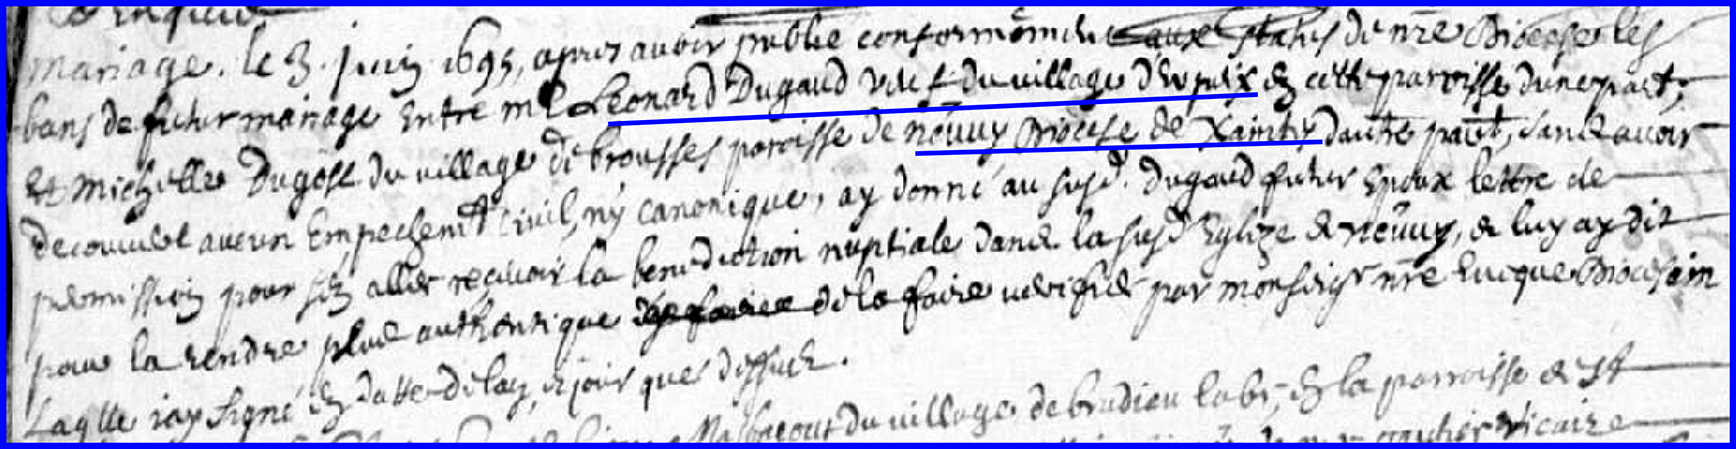 mariage. le 3. juin 1695, apres avoir publie conformément aux statuts de nre Diocese les
bans de futur mariage Entre me Leonard Dugaud veuf du village d'Evpeix en cette parroisse dune part;
Et Michelle Dugost du village de brousses paroisse de neuuy Diocese de Xaintes dautre part, sans avoir
decouvert aucun Empechemt Civil, ny canonique, ay donné au susd. Dugaud futur Epoux lettre de
permission pour sen aller reçevoir la benediction nuptiale dans la susd Eglize de neuuy, & luy ay dit
pour la rendre plus authentique de la faire verifier par monseigr nre Evecque Diocesain
Laqlle jay signé en datte de laq, jour que dessus.
du village de la parroisse de St
vicaire